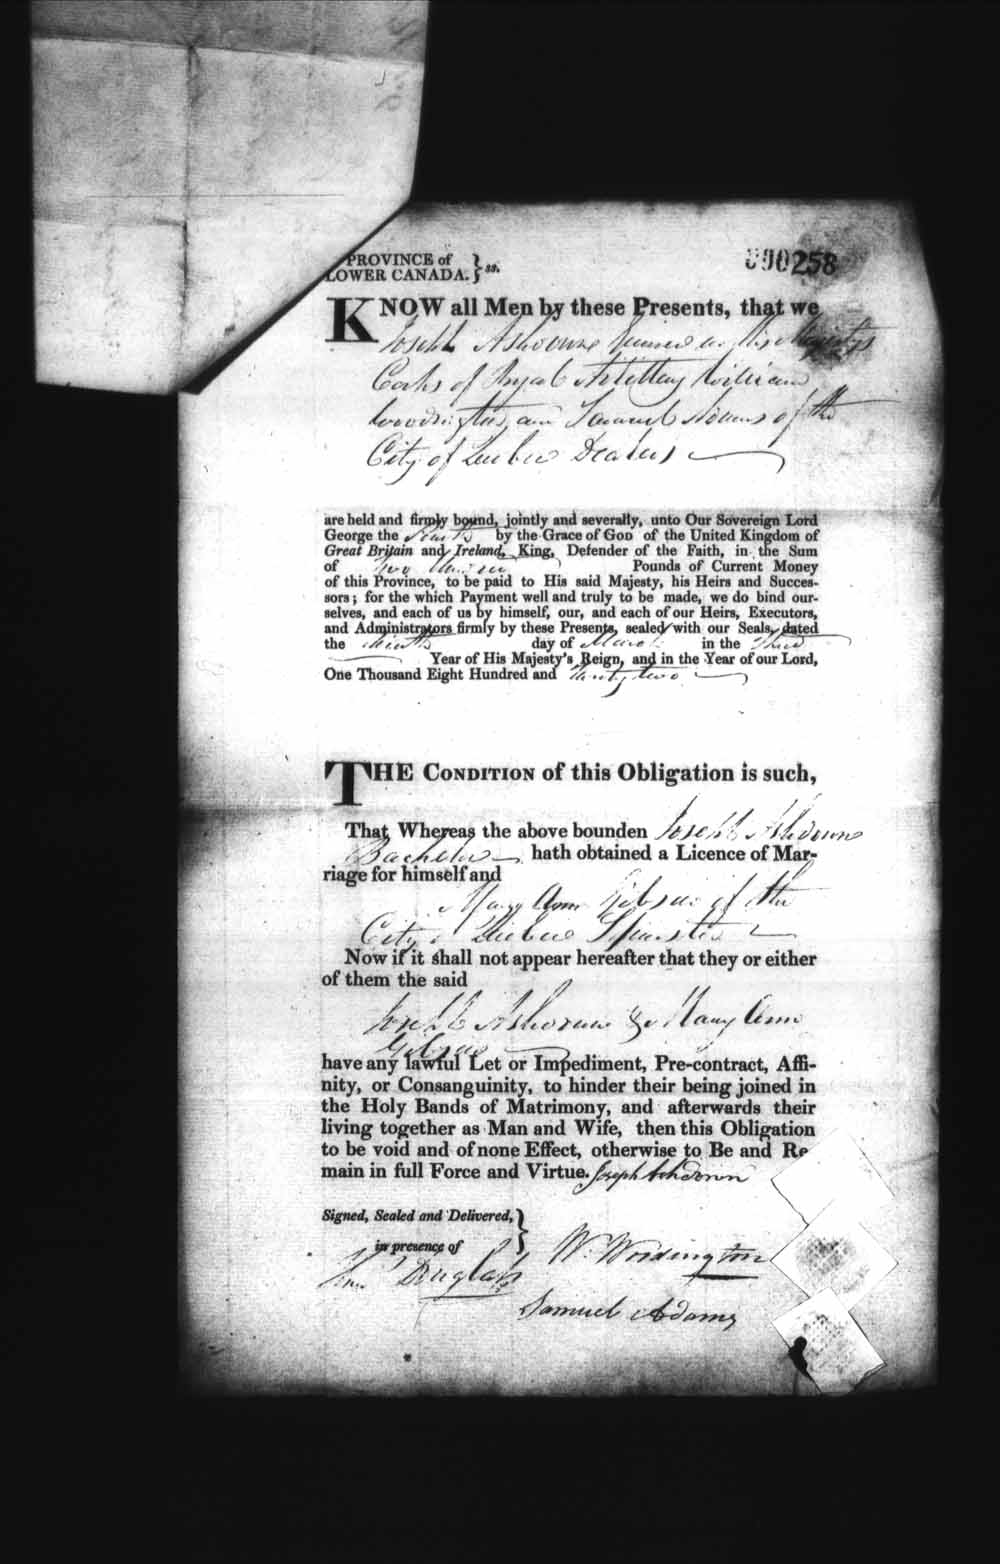 PROVINCE of
LOWER CANADA. } ss.
000258
KNOW all Men by these Presents, that we
Joseph Ashdowne in His Majestys
Corps of Royal Artillery William
Wordington and Samuel Adams of the
City of Quebec Dealers
are held and firmly bound, jointly and severally, unto Our Sovereign Lord
George the Fourth by the Grace of GOD of the United Kingdom of
Great Britain and Ireland, King, Defender of the Faith, in the Sum
of Two Hundred Pounds of Current Money
of this Province, to be paid to His said Majesty, his Heirs and Succes-
sors; for the which Payment well and truly to be made, we do bind our-
selves, and each of us by himself, our, and each of our Heirs, Executors,
and Administrators firmly by these Presents, sealed with our Seals, dated
the Ninth day of March in the Third
Year of His Majesty's Reign, and in the Year of our Lord,
One Thousand Eight Hundred and Twenty two
THE CONDITION of this Obligation is such,
That Whereas the above bounden Joseph Ashdowne
Bachelor hath obtained a Licence of Mar-
riage for himself and
Mary Ann Gibson of the
City of Quebec Spinster
Now if it shall not appear hereafter that they or either
of them the said
Joseph Ashdowne & Mary Ann
Gibson
have any lawful Let or Impediment, Pre-contract, Affi-
nity, or Consanguinity, to hinder their being joined in
the Holy Bands of Matrimony, and afterwards their
living together as Man and Wife, then this Obligation
to be void and of none Effect, otherwise to Be and Re
main in full Force and Virtue. Joseph Ashdown
Signed, Sealed and Delivered,
in presence of }
W. Wordington
Douglass
Samuel Adams